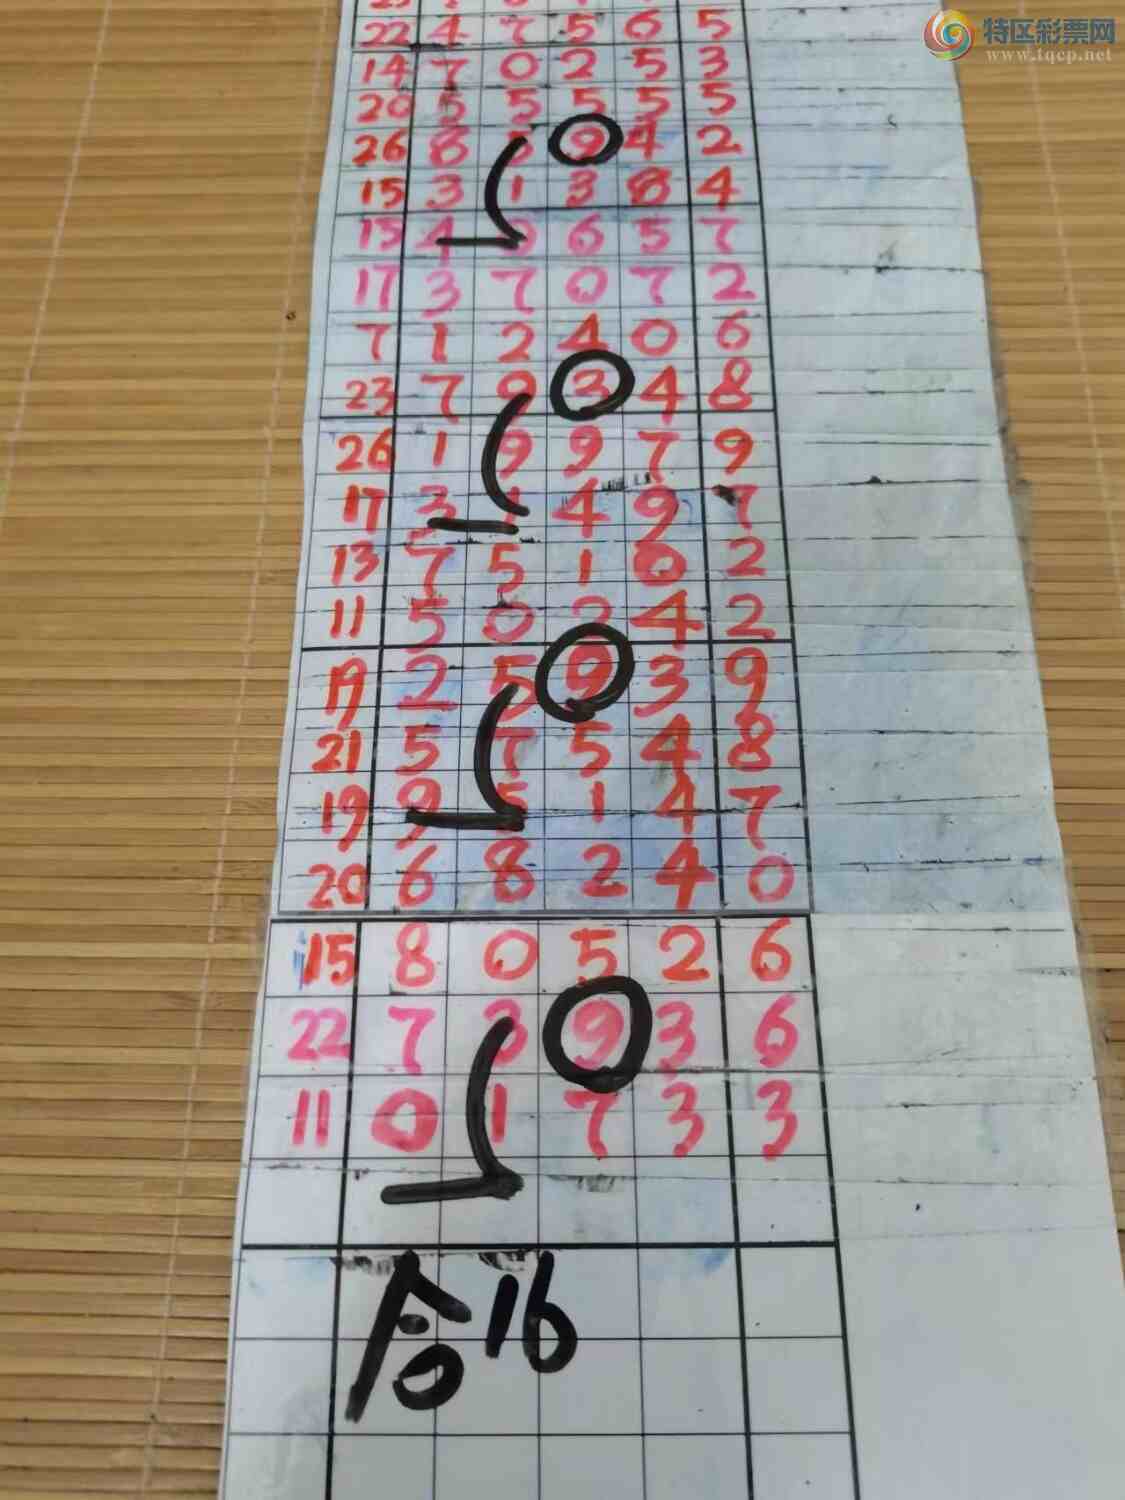 特区彩票网
www.tqcp.net
22 4 7 5 6 5
14 7 0 2 5 3
20 5 5 5 5 5
26 8 9 4 2
15 3 1 3 8 4
15 4 6 5 7
17 3 7 0 7 2
7 1 2 4 0 6
23 7 9 3 4 8
26 1 9 9 7 9
17 3 1 4 9 7
13 7 5 1 0 2
11 5 0 2 4 2
19 2 5 9 3 9
21 5 7 5 4 8
19 9 5 1 4 7
20 6 8 2 4 0
15 8 0 5 2 6
22 7 3 9 3 6
11 0 1 7 3 3
合16